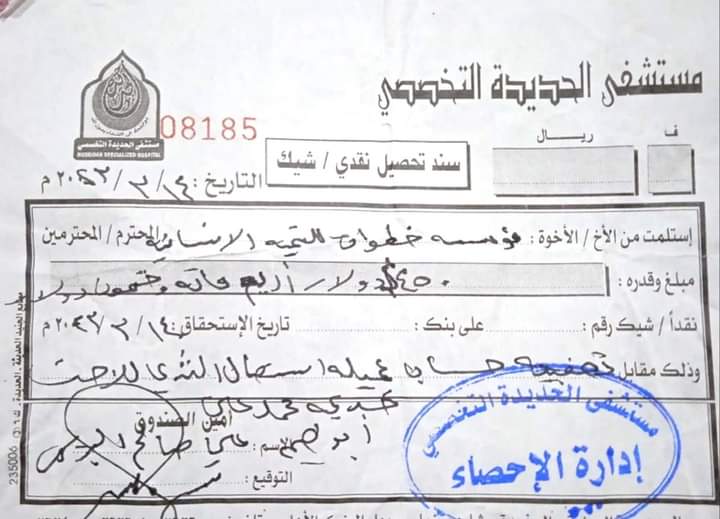 مستشفى الحديدة التخصصي
مستشفى الحديدة التخصصي
HODEIDAH SPECIALIZED HOSPITAL
08185
ف ريال
سند تحصيل نقدي / شيك
التاريخ: ١٤ / ٢ / ٢٠٢٣ م
إستلمت من الأخ / الأخوة : مؤسسه خطوات للتنميه الانسانيه المحترم / المحترمين
مبلغ وقدره : ٤٥٠$ دولار أربع مائه وخمسون دولار
نقداً / شيك رقم : على بنك : تاريخ الإستحقاق: ١٤ / ٢ / ٢٠٢٣ م
وذلك مقابل تصفيه حساب عمليه استصال الثدي للاخت
محمد علي
أمين الصندوق
الإسم: علي صالح
التوقيع :
مستشفى الحديدة التخصصي
إدارة الإحصاء
235006